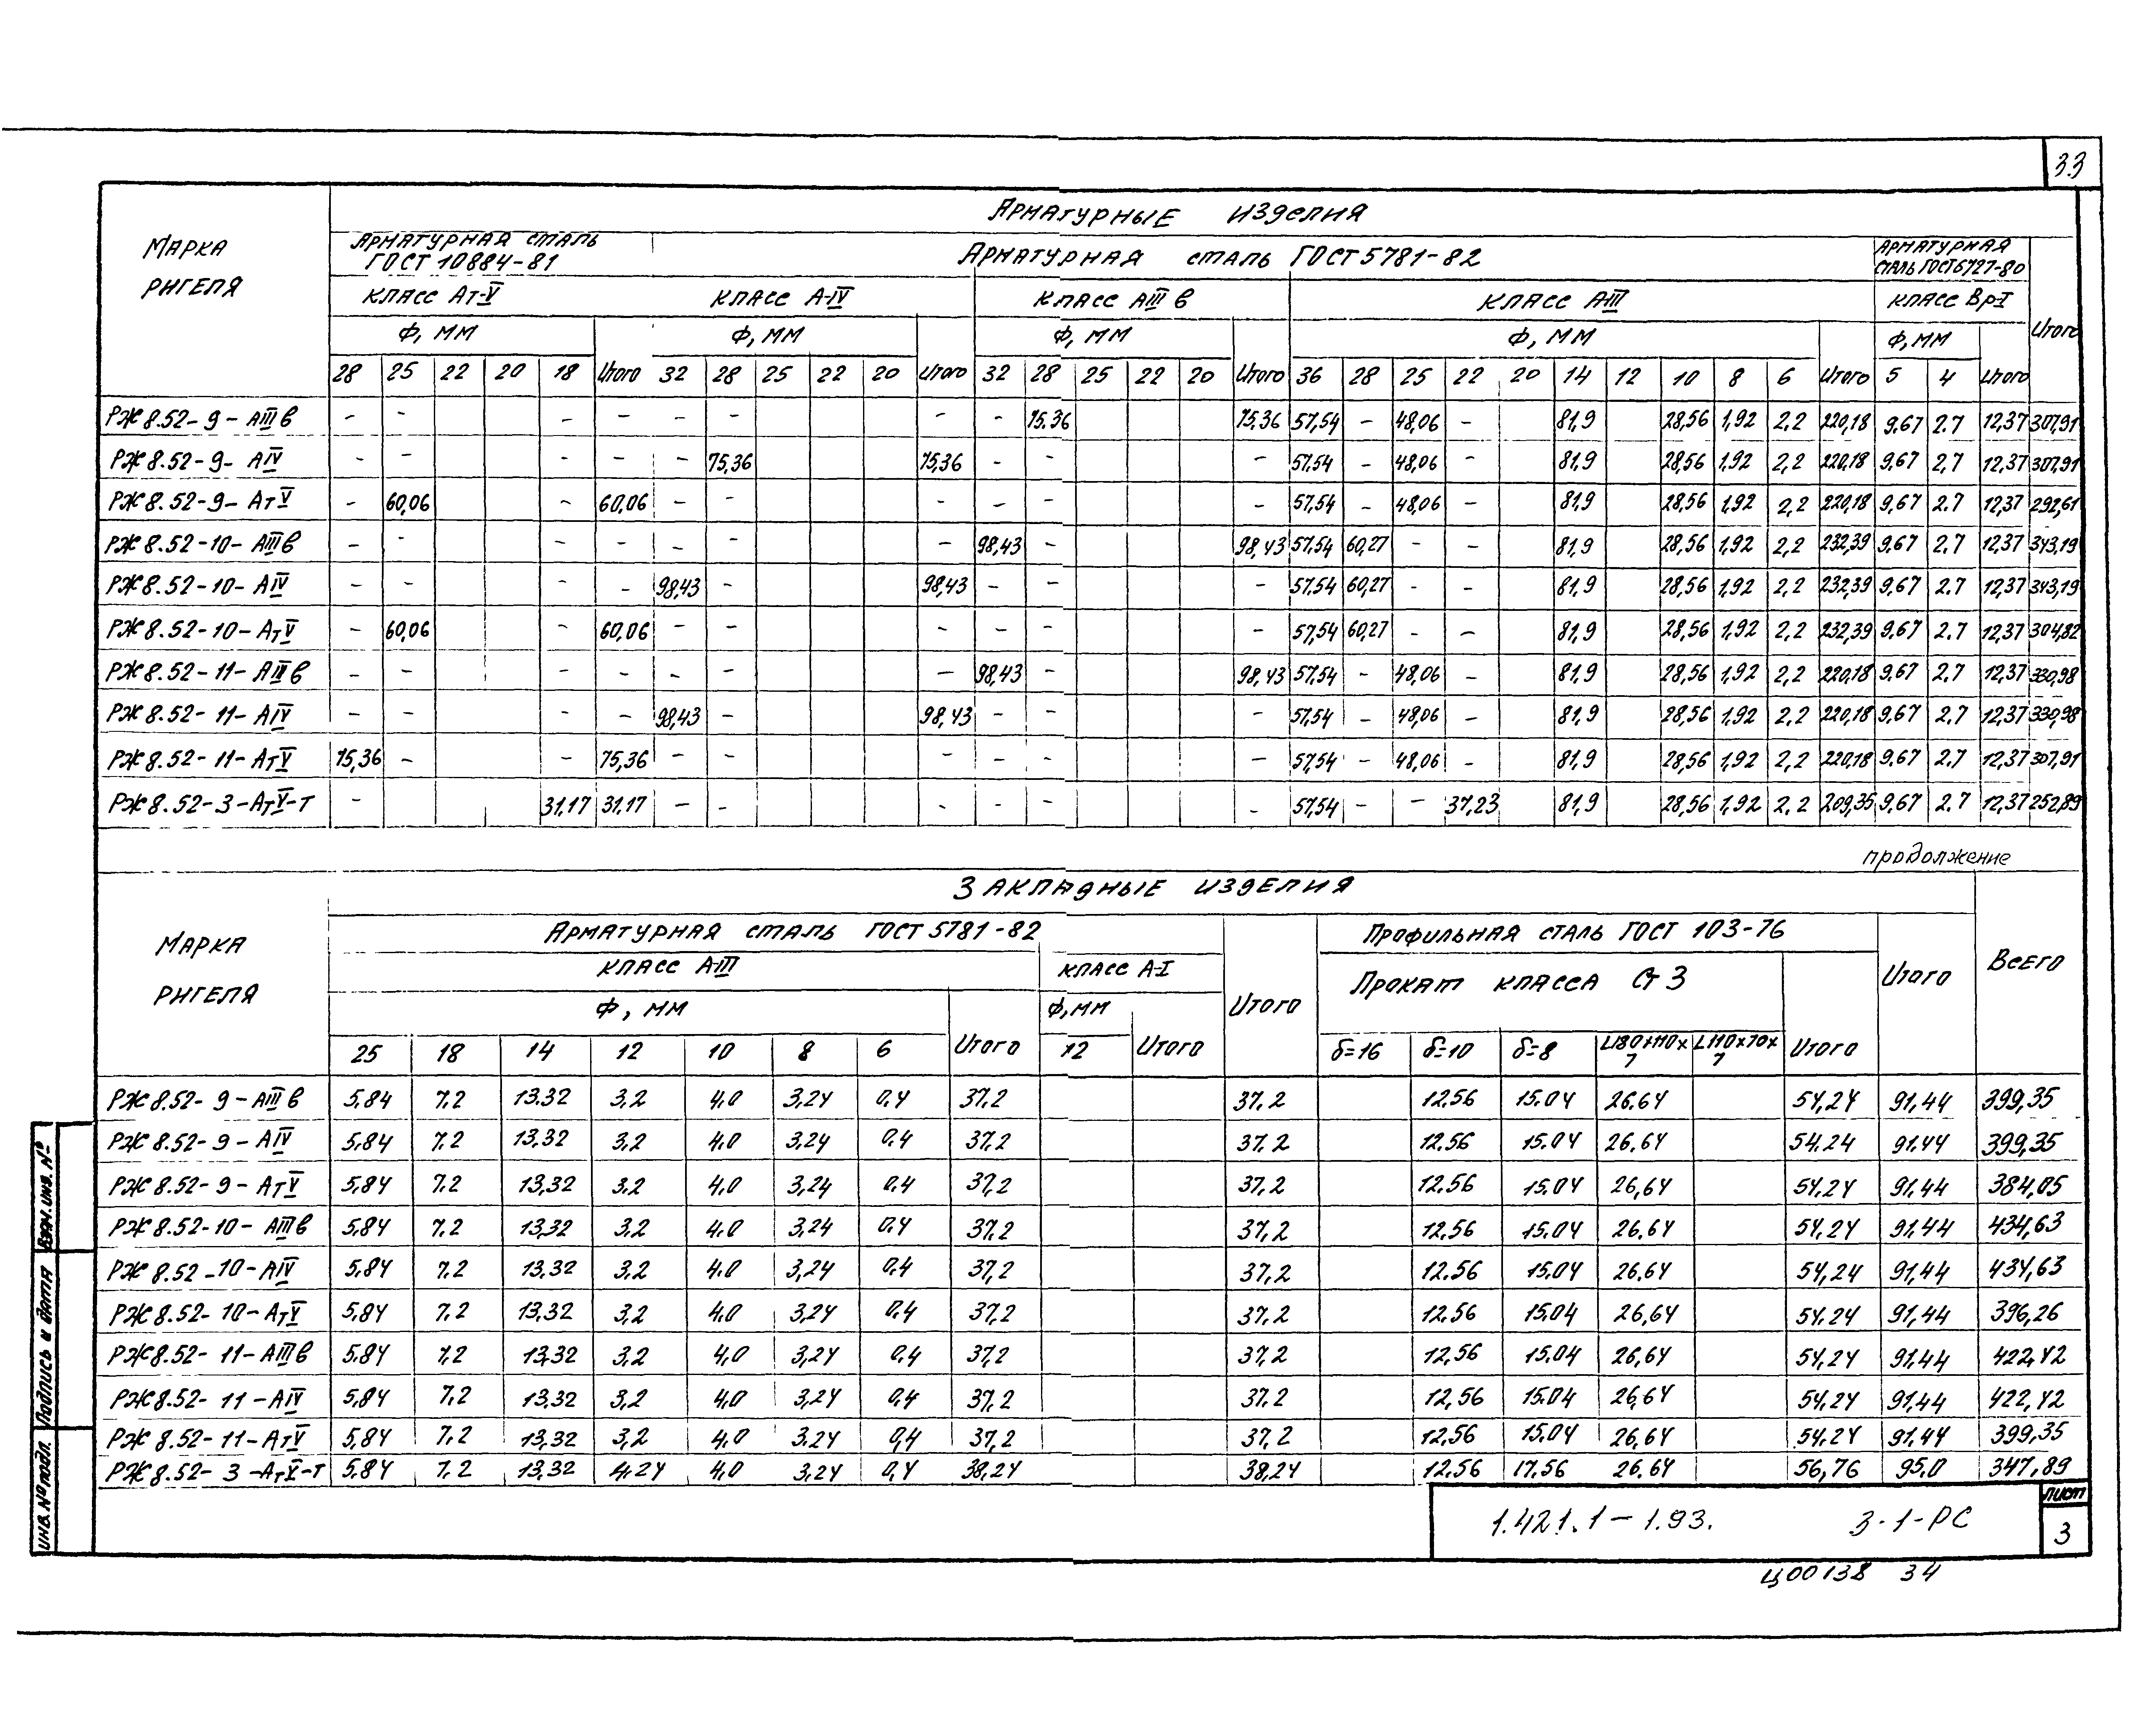 33
Марка ригеля
Арматурные изделия
Арматурная сталь ГОСТ 10884-81
Арматурная сталь ГОСТ 5781-82
Арматурная сталь ГОСТ 6727-80
Итого
Класс Ат-V
Класс А-IV
Класс АIIIв
Класс А-III
Класс Вр-I
Ф, мм
Ф, мм
Ф, мм
Ф, мм
Ф, мм
28 25 22 20 18 Итого 32 28 25 22 20 Итого 32 28 25 22 20 Итого 36 28 25 22 20 14 12 10 8 6 Итого 5 4 Итого
РЖ 8.52-9-АIIIв - - - - - - - - 75.36 75.36 57,54 - 48,06 - 81,9 28,56 1,92 2,2 220,18 9,67 2.7 12,37 307,91
РЖ 8.52-9-АIV - - - - - 75,36 75,36 - - - 57,54 - 48,06 - 81,9 28,56 1,92 2,2 220,18 9,67 2,7 12,37 307,91
РЖ 8.52-9-АтV - 60,06 - 60,06 - - - - - - 57,54 - 48,06 - 81,9 28,56 1,92 2,2 220,18 9,67 2.7 12,37 292,61
РЖ 8.52-10-АIIIв - - - - - - - 98,43 - 98,43 57,54 60,27 - - 81,9 28,56 1,92 2,2 232,39 9,67 2,7 12,37 343,19
РЖ 8.52-10-АIV - - - - 98,43 - 98,43 - - - 57,54 60,27 - - 81,9 28,56 1,92 2,2 232,39 9,67 2.7 12,37 343,19
РЖ 8.52-10-АтV - 60,06 - 60,06 - - - - - - 57,54 60,27 - - 81,9 28,56 1,92 2,2 232,39 9,67 2.7 12,37 304,82
РЖ 8.52-11-АIIIв - - - - - - - 98,43 - 98,43 57,54 - 48,06 - 81,9 28,56 1,92 2,2 220,18 9,67 2,7 12,37 330,98
РЖ 8.52-11-АIV - - - - 98,43 - 98,43 - - - 57,54 - 48,06 - 81,9 28,56 1,92 2,2 220,18 9,67 2,7 12,37 330,98
РЖ 8.52-11-АтV 75,36 - - 75,36 - - - - - - 57,54 - 48,06 - 81,9 28,56 1,92 2,2 220,18 9,67 2,7 12,37 307,91
РЖ 8.52-3-АтV-т - 31,17 31,17 - - - - - - 57,54 - - 37,23 81,9 28,56 1,92 2,2 209,35 9,67 2.7 12,37 252,89
продолжение
Марка ригеля
Закладные изделия
Всего
Арматурная сталь ГОСТ 5781-82
Итого
Профильная сталь ГОСТ 103-76
Итого
Класс А-III
Класс А-I
Прокат класса Ст 3
Ф, мм
Ф, мм
25 18 14 12 10 8 6 Итого 12 Итого δ=16 δ=10 δ=8 L180×110×7 L110×70×7 Итого
РЖ 8.52-9-АIIIв 5,84 7,2 13,32 3,2 4,0 3,24 0,4 37,2 37,2 12,56 15.04 26.64 54,24 91,44 399,35
РЖ 8.52-9-АIV 5,84 7,2 13,32 3,2 4,0 3,24 0,4 37,2 37,2 12,56 15.04 26,64 54,24 91,44 399,35
РЖ 8.52-9-АтV 5,84 7,2 13,32 3,2 4,0 3,24 0,4 37,2 37,2 12,56 15.04 26,64 54,24 91,44 384,05
РЖ 8.52-10-АIIIв 5,84 7,2 13,32 3,2 4,0 3,24 0,4 37,2 37,2 12,56 15.04 26.64 54,24 91,44 434,63
РЖ 8.52-10-АIV 5,84 7,2 13,32 3,2 4,0 3,24 0,4 37,2 37,2 12,56 15,04 26,64 54,24 91,44 434,63
РЖ 8.52-10-АтV 5,84 7,2 13,32 3,2 4,0 3,24 0,4 37,2 37,2 12,56 15,04 26,64 54,24 91,44 396,26
РЖ 8.52-11-АIIIв 5,84 7,2 13,32 3,2 4,0 3,24 0,4 37,2 37,2 12,56 15,04 26,64 54,24 91,44 422,42
РЖ 8.52-11-АIV 5,84 7,2 13,32 3,2 4,0 3,24 0,4 37,2 37,2 12,56 15.04 26,64 54,24 91,44 422,42
РЖ 8.52-11-АтV 5,84 7,2 13,32 3,2 4,0 3.24 0,4 37,2 37,2 12,56 15,04 26,64 54,24 91,44 399,35
РЖ 8.52-3-АтV-т 5,84 7,2 13,32 4,24 4,0 3,24 0,4 38,24 38,24 12.56 17.56 26.64 56,76 95.0 347,89
Взам. инв. №
Подпись и дата
Инв. № подл.
1.421.1-1.93. 3-1-РС
Лист
3
Ц00138 34